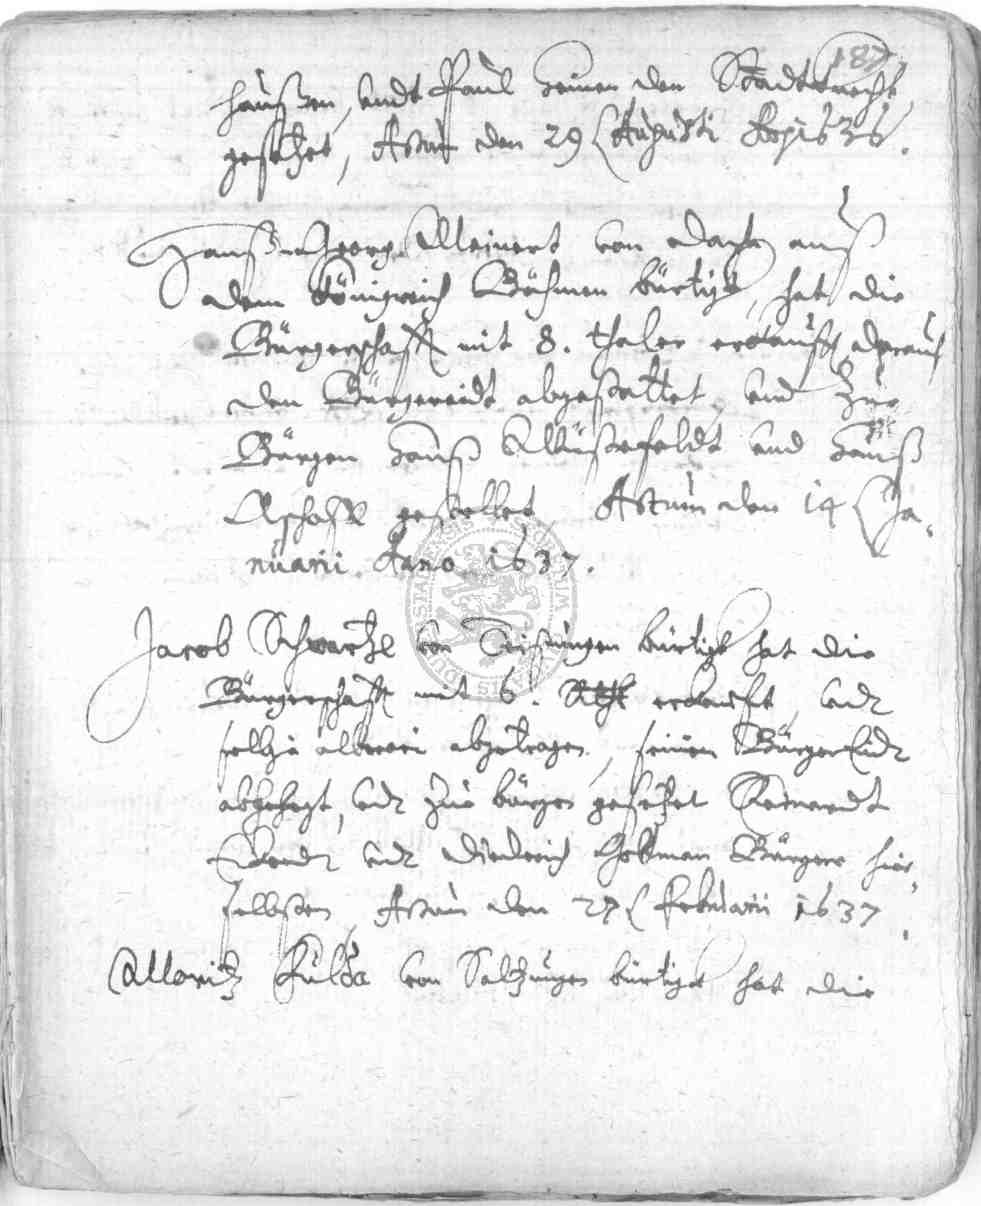 187
haußen, undt Paul Heinen den Stadtknecht
gesetzet, Actum den 29 Augusti Anno 1636.
Hanß Georg Meinert von aus
dem Königreich Böhmen bürtigk, hat die
Bürgerschafft mit 8. thaler erkaufft, darauf
den Bürgereidt abgestattet und zue
Bürgen Hanß und Hanß
gestellet, Actum den 14 Ja-
nuarii Anno 1637.
Jacob Schwartze von bürtigk hat die
Bürgerschafft mit 6. Rthl erkaufft, undt
solche abgetragen, seinen Bürger Eidt
abgelegt, undt zue bürgen gesetzet
undt Diederich Bürgere hier-
selbsten, Actum den 27 Februarii 1637.
Moritz Fulda von Saltzungen bürtigk hat die